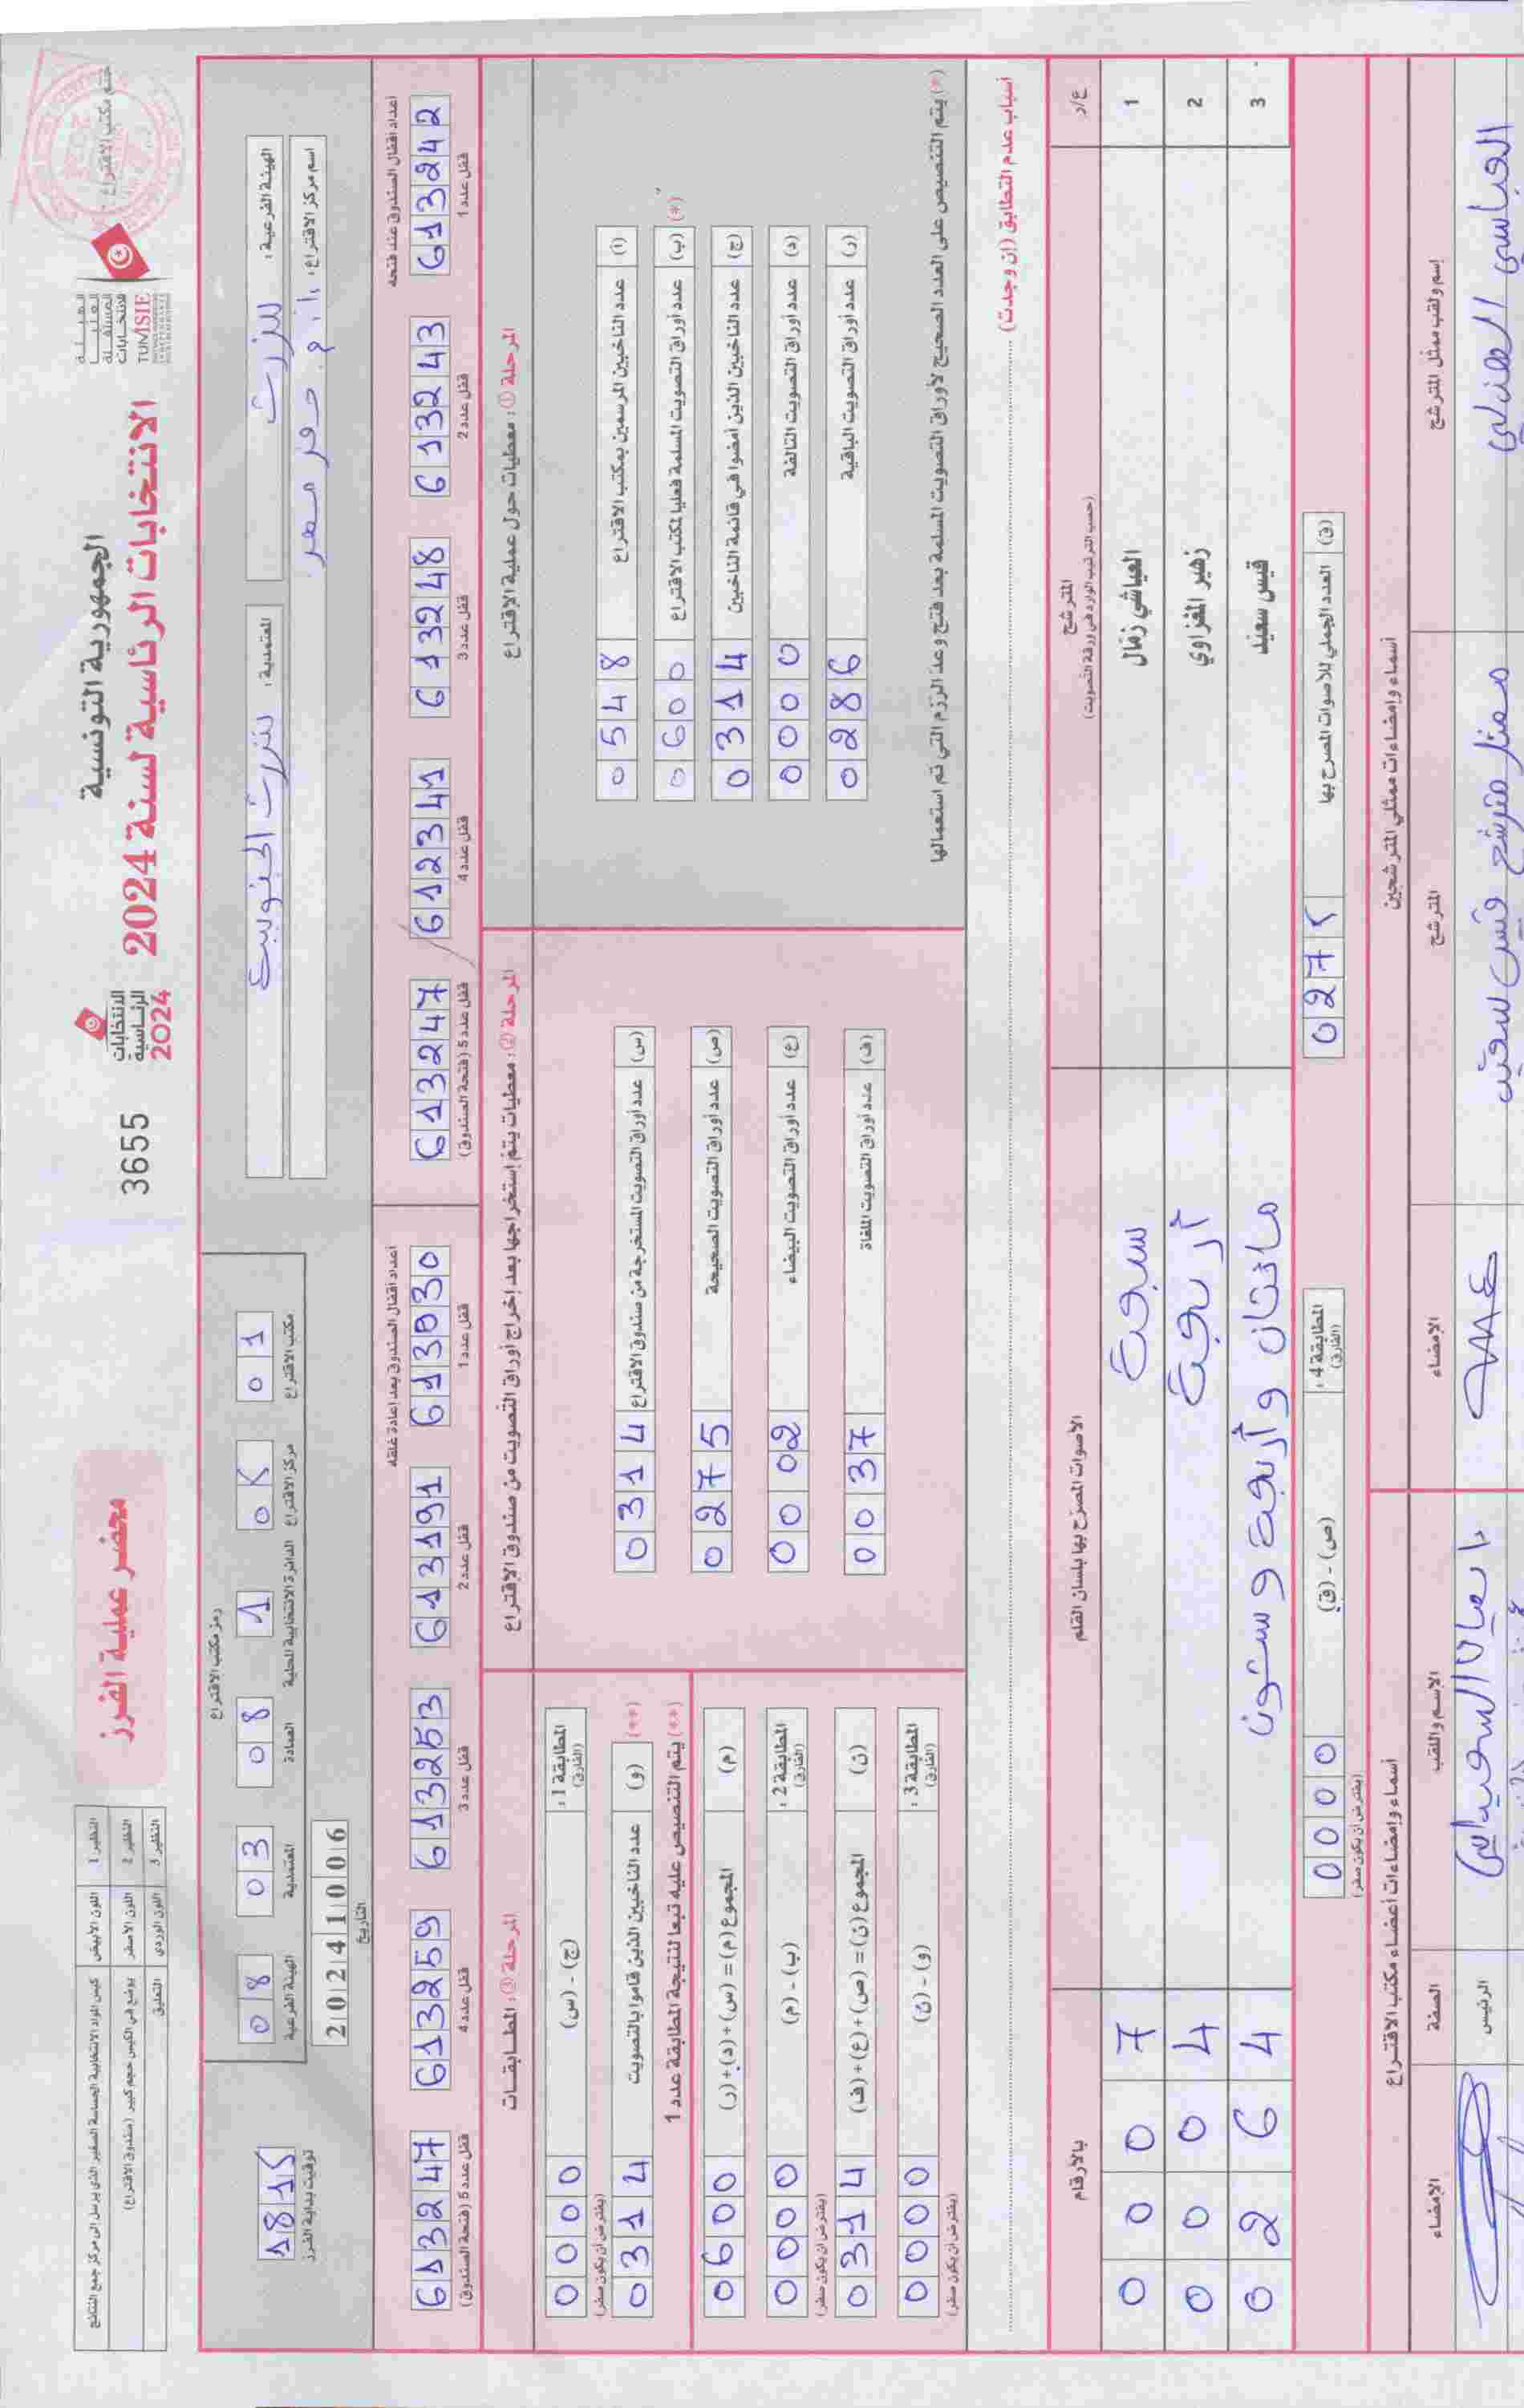 الجمهورية التونسية
الانتخابات الرئاسية لسنة 2024
الهيئة العليا المستقلة للانتخابات
TUNISIE
ختم مكتب الاقتراع
الانتخابات الرئاسية 2024
3655
محضر عملية الفرز
النظير 1 اللون الأبيض كيس المواد الانتخابية الحساسة الصغير الذي يرسل إلى مركز جمع النتائج
النظير 2 اللون الأصفر يوضع في الكيس حجم كبير (صندوق الاقتراع)
النظير 3 اللون الوردي التعليق
الهيئة الفرعية : بنزرت
المعتمدية : بنزرت الجنوبية
اسم مركز الاقتراع :
رمز مكتب الاقتراع
08 الهيئة الفرعية
03 المعتمدية
08 العمادة
1 الدائرة الانتخابية المحلية
مركز الاقتراع
01 مكتب الاقتراع
20241006
التاريخ
1815
توقيت بداية الفرز
أعداد أقفال الصندوق عند فتحه
613242 قفل عدد 1
613243 قفل عدد 2
613248 قفل عدد 3
612341 قفل عدد 4
613247 قفل عدد 5 (فتحة الصندوق)
أعداد أقفال الصندوق بعد إعادة غلقه
613030 قفل عدد 1
613191 قفل عدد 2
613253 قفل عدد 3
613259 قفل عدد 4
613247 قفل عدد 5 (فتحة الصندوق)
المرحلة ① : معطيات حول عملية الاقتراع
(أ) عدد الناخبين المرسمين بمكتب الاقتراع 0548
(ب) (*) عدد أوراق التصويت المسلمة فعليا لمكتب الاقتراع 0600
(ج) عدد الناخبين الذين أمضوا في قائمة الناخبين 0314
(د) عدد أوراق التصويت التالفة 0000
(ر) عدد أوراق التصويت الباقية 0286
(*) يتم التنصيص على العدد الصحيح لأوراق التصويت المسلمة بعد فتح وعد الرزم التي تم استعمالها
المرحلة ② : معطيات يتم إستخراجها بعد إخراج أوراق التصويت من صندوق الاقتراع
(س) عدد أوراق التصويت المستخرجة من صندوق الاقتراع 0314
(ص) عدد أوراق التصويت الصحيحة 0275
(ع) عدد أوراق التصويت البيضاء 0002
(ف) عدد أوراق التصويت الملغاة 0037
المرحلة ③ : المطابقات
المطابقة 1 : (الفارق) (ج) - (س) 0000
(يفترض أن يكون صفر)
(**) (و) عدد الناخبين الذين قاموا بالتصويت 0314
(**) يتم التنصيص عليه تبعا لنتيجة المطابقة عدد 1
(م) المجموع (م) = (س)+(د)+(ر) 0600
المطابقة 2 : (الفارق) (ب) - (م) 0000
(يفترض أن يكون صفر)
(ن) المجموع (ن) = (ص)+(ع)+(ف) 0314
المطابقة 3 : (الفارق) (و) - (ن) 0000
(يفترض أن يكون صفر)
أسباب عدم التطابق (إن وجدت)
ع/د المترشح (حسب الترتيب الوارد في ورقة التصويت) الأصوات المصرح بها بلسان القلم بالأرقام
1 العياشي زمّال سبعة 0007
2 زهير المغزاوي أربعة 0004
3 قيس سعيّد مائتان وأربعة وستون 0264
(ق) العدد الجملي للأصوات المصرح بها 0275
المطابقة 4 : (الفارق) (ص) - (ق) 0000
(يفترض أن يكون صفر)
أسماء وإمضاءات ممثلي المترشحين
إسم ولقب ممثل المترشح المترشح الإمضاء
العباسي ممثل مترشح قيس سعيد
أسماء وإمضاءات أعضاء مكتب الاقتراع
الإسم واللقب الصفة الإمضاء
السعيداني الرئيس